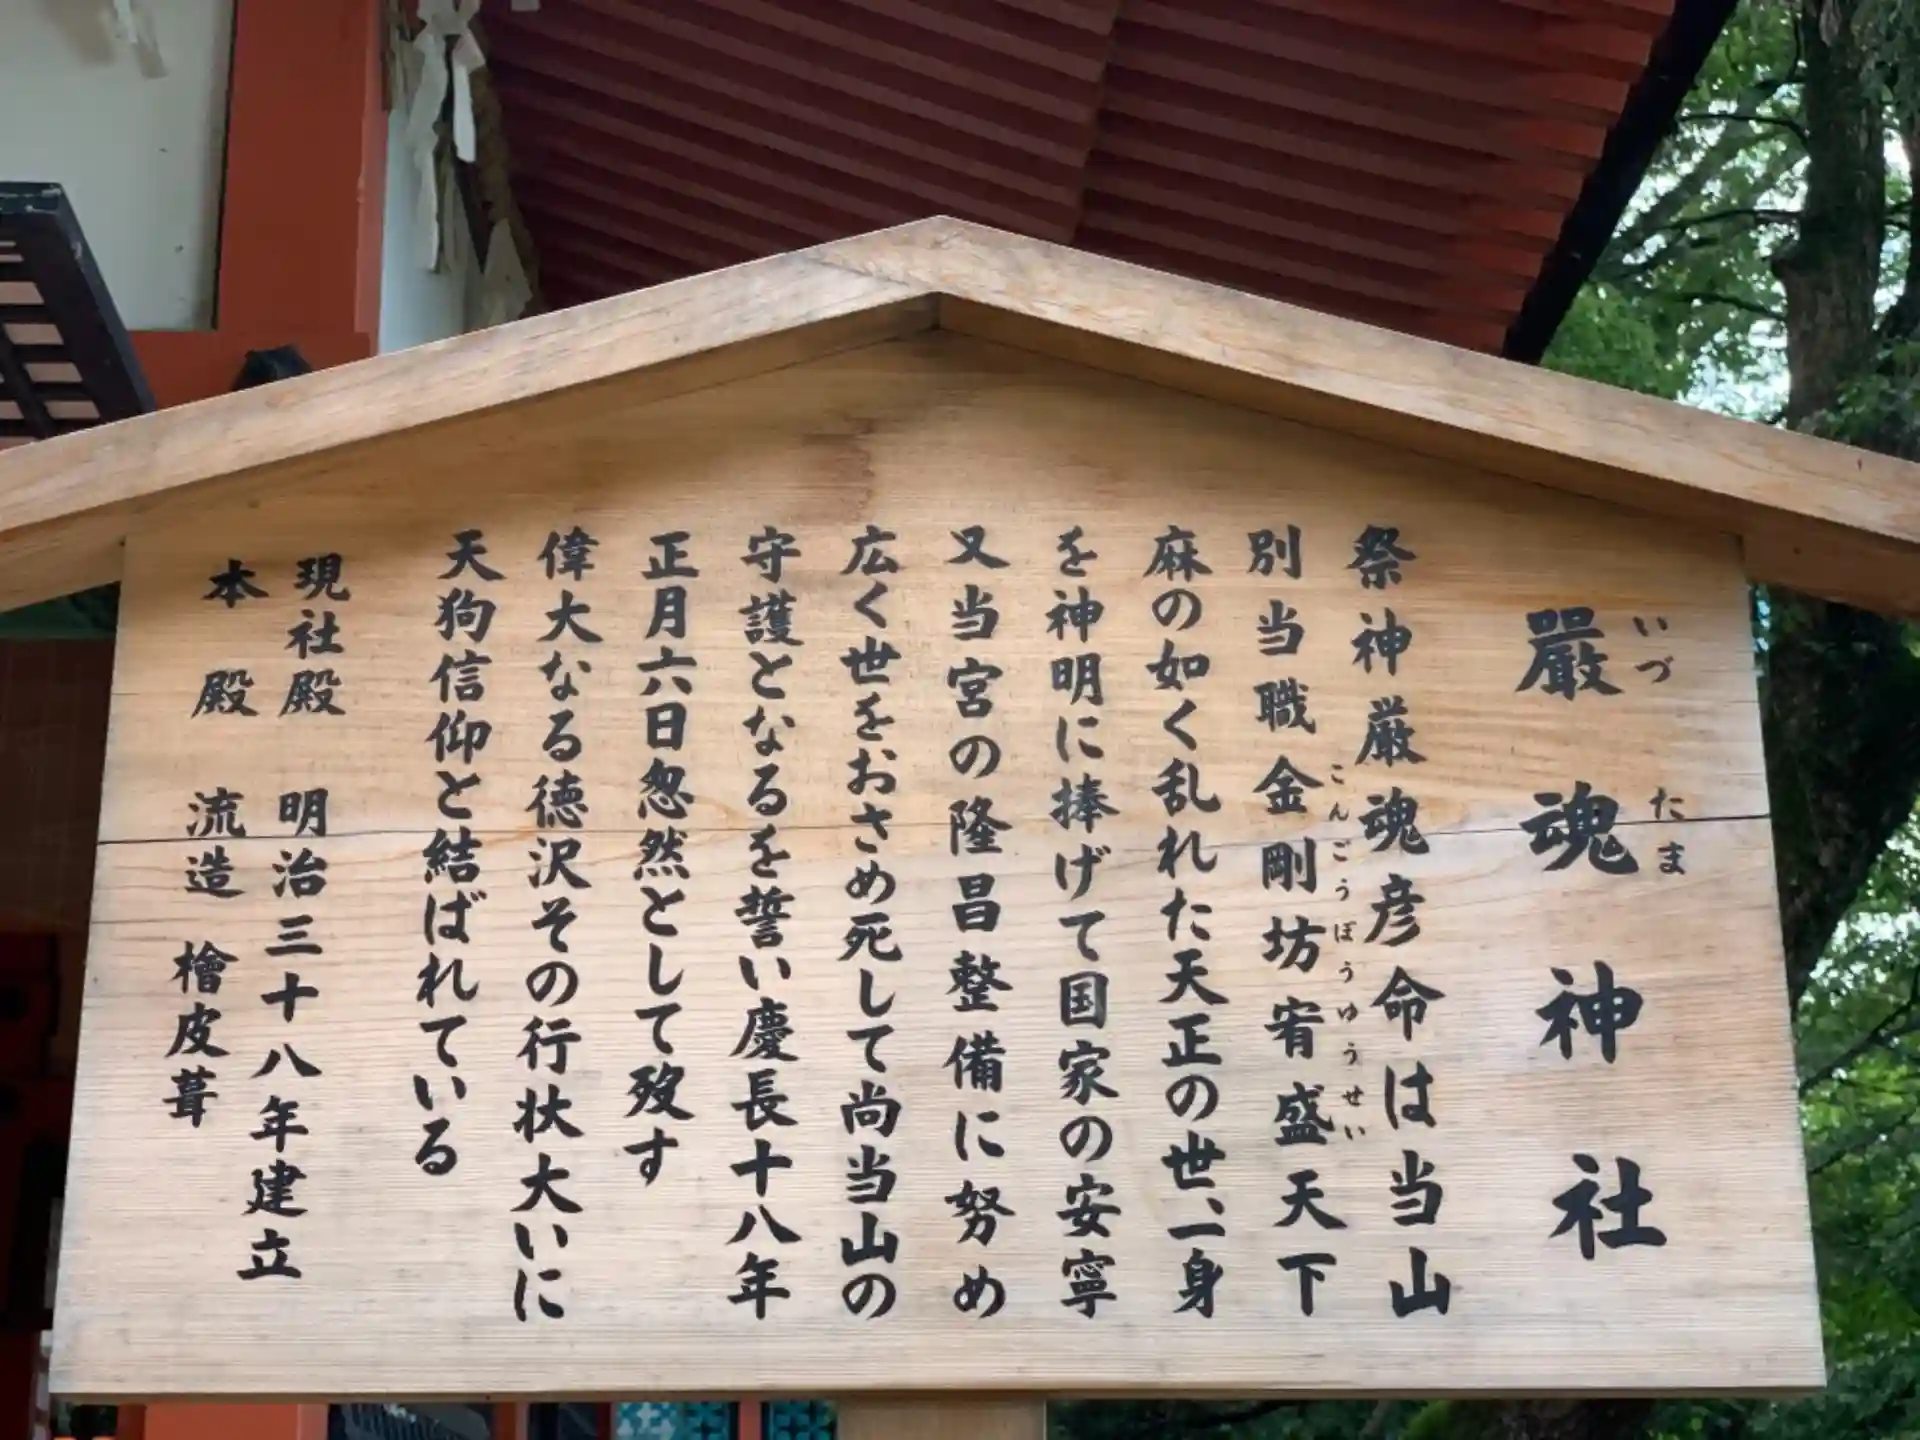 嚴魂神社
いづたま
祭神厳魂彦命は当山
別当職金剛坊宥盛天下
こんごうぼうゆうせい
麻の如く乱れた天正の世、一身
を神明に捧げて国家の安寧
又当宮の隆昌整備に努め
広く世をおさめ死して尚当山の
守護となるを誓い慶長十八年
正月六日怱然として歿す
偉大なる徳沢その行状大いに
天狗信仰と結ばれている
現社殿 明治三十八年建立
本殿 流造 檜皮葺